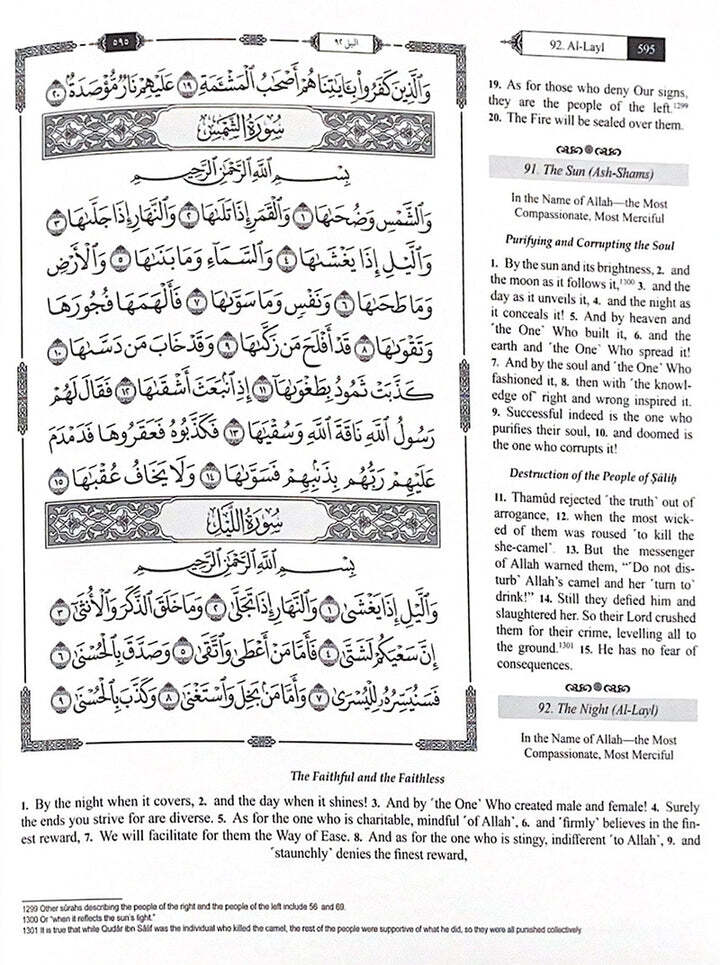 ٥٩٥
الليل ٩٢
وَٱلَّذِينَ كَفَرُوا۟ بِـَٔايَـٰتِنَا هُمْ أَصْحَـٰبُ ٱلْمَشْـَٔمَةِ ١٩ عَلَيْهِمْ نَارٌ مُّؤْصَدَةٌۢ ٢٠
سُورَةُ الشَّمْسِ
بِسْمِ ٱللَّهِ ٱلرَّحْمَـٰنِ ٱلرَّحِيمِ
وَٱلشَّمْسِ وَضُحَىٰهَا ١ وَٱلْقَمَرِ إِذَا تَلَىٰهَا ٢ وَٱلنَّهَارِ إِذَا جَلَّىٰهَا ٣
وَٱلَّيْلِ إِذَا يَغْشَىٰهَا ٤ وَٱلسَّمَآءِ وَمَا بَنَىٰهَا ٥ وَٱلْأَرْضِ
وَمَا طَحَىٰهَا ٦ وَنَفْسٍ وَمَا سَوَّىٰهَا ٧ فَأَلْهَمَهَا فُجُورَهَا
وَتَقْوَىٰهَا ٨ قَدْ أَفْلَحَ مَن زَكَّىٰهَا ٩ وَقَدْ خَابَ مَن دَسَّىٰهَا ١٠
كَذَّبَتْ ثَمُودُ بِطَغْوَىٰهَآ ١١ إِذِ ٱنۢبَعَثَ أَشْقَىٰهَا ١٢ فَقَالَ لَهُمْ
رَسُولُ ٱللَّهِ نَاقَةَ ٱللَّهِ وَسُقْيَـٰهَا ١٣ فَكَذَّبُوهُ فَعَقَرُوهَا فَدَمْدَمَ
عَلَيْهِمْ رَبُّهُم بِذَنۢبِهِمْ فَسَوَّىٰهَا ١٤ وَلَا يَخَافُ عُقْبَـٰهَا ١٥
سُورَةُ اللَّيْلِ
بِسْمِ ٱللَّهِ ٱلرَّحْمَـٰنِ ٱلرَّحِيمِ
وَٱلَّيْلِ إِذَا يَغْشَىٰ ١ وَٱلنَّهَارِ إِذَا تَجَلَّىٰ ٢ وَمَا خَلَقَ ٱلذَّكَرَ وَٱلْأُنثَىٰٓ ٣
إِنَّ سَعْيَكُمْ لَشَتَّىٰ ٤ فَأَمَّا مَنْ أَعْطَىٰ وَٱتَّقَىٰ ٥ وَصَدَّقَ بِٱلْحُسْنَىٰ ٦
فَسَنُيَسِّرُهُۥ لِلْيُسْرَىٰ ٧ وَأَمَّا مَنۢ بَخِلَ وَٱسْتَغْنَىٰ ٨ وَكَذَّبَ بِٱلْحُسْنَىٰ ٩
92. Al-Layl
595
19. As for those who deny Our signs,
they are the people of the left.1299
20. The Fire will be sealed over them.
91. The Sun (Ash-Shams)
In the Name of Allah—the Most
Compassionate, Most Merciful
Purifying and Corrupting the Soul
1. By the sun and its brightness, 2. and
the moon as it follows it,1300 3. and the
day as it unveils it, 4. and the night as
it conceals it! 5. And by heaven and
˹the One˺ Who built it, 6. and the
earth and ˹the One˺ Who spread it!
7. And by the soul and ˹the One˺ Who
fashioned it, 8. then with ˹the knowl-
edge of˺ right and wrong inspired it.
9. Successful indeed is the one who
purifies their soul, 10. and doomed is
the one who corrupts it!
Destruction of the People of Ṣâliḥ
11. Thamûd rejected ˹the truth˺ out of
arrogance, 12. when the most wick-
ed of them was roused ˹to kill the
she-camel˺. 13. But the messenger
of Allah warned them, “˹Do not dis-
turb˺ Allah’s camel and her ˹turn to˺
drink!” 14. Still they defied him and
slaughtered her. So their Lord crushed
them for their crime, levelling all to
the ground.1301 15. He has no fear of
consequences.
92. The Night (Al-Layl)
In the Name of Allah—the Most
Compassionate, Most Merciful
The Faithful and the Faithless
1. By the night when it covers, 2. and the day when it shines! 3. And by ˹the One˺ Who created male and female! 4. Surely
the ends you strive for are diverse. 5. As for the one who is charitable, mindful ˹of Allah˺, 6. and ˹firmly˺ believes in the fin-
est reward, 7. We will facilitate for them the Way of Ease. 8. And as for the one who is stingy, indifferent ˹to Allah˺, 9. and
˹staunchly˺ denies the finest reward,
1299 Other sûrahs describing the people of the right and the people of the left include 56 and 69.
1300 Or “when it reflects the sun’s light.”
1301 It is true that while Qudâr ibn Sâlif was the individual who killed the camel, the rest of the people were supportive of what he did, so they were all punished collectively.